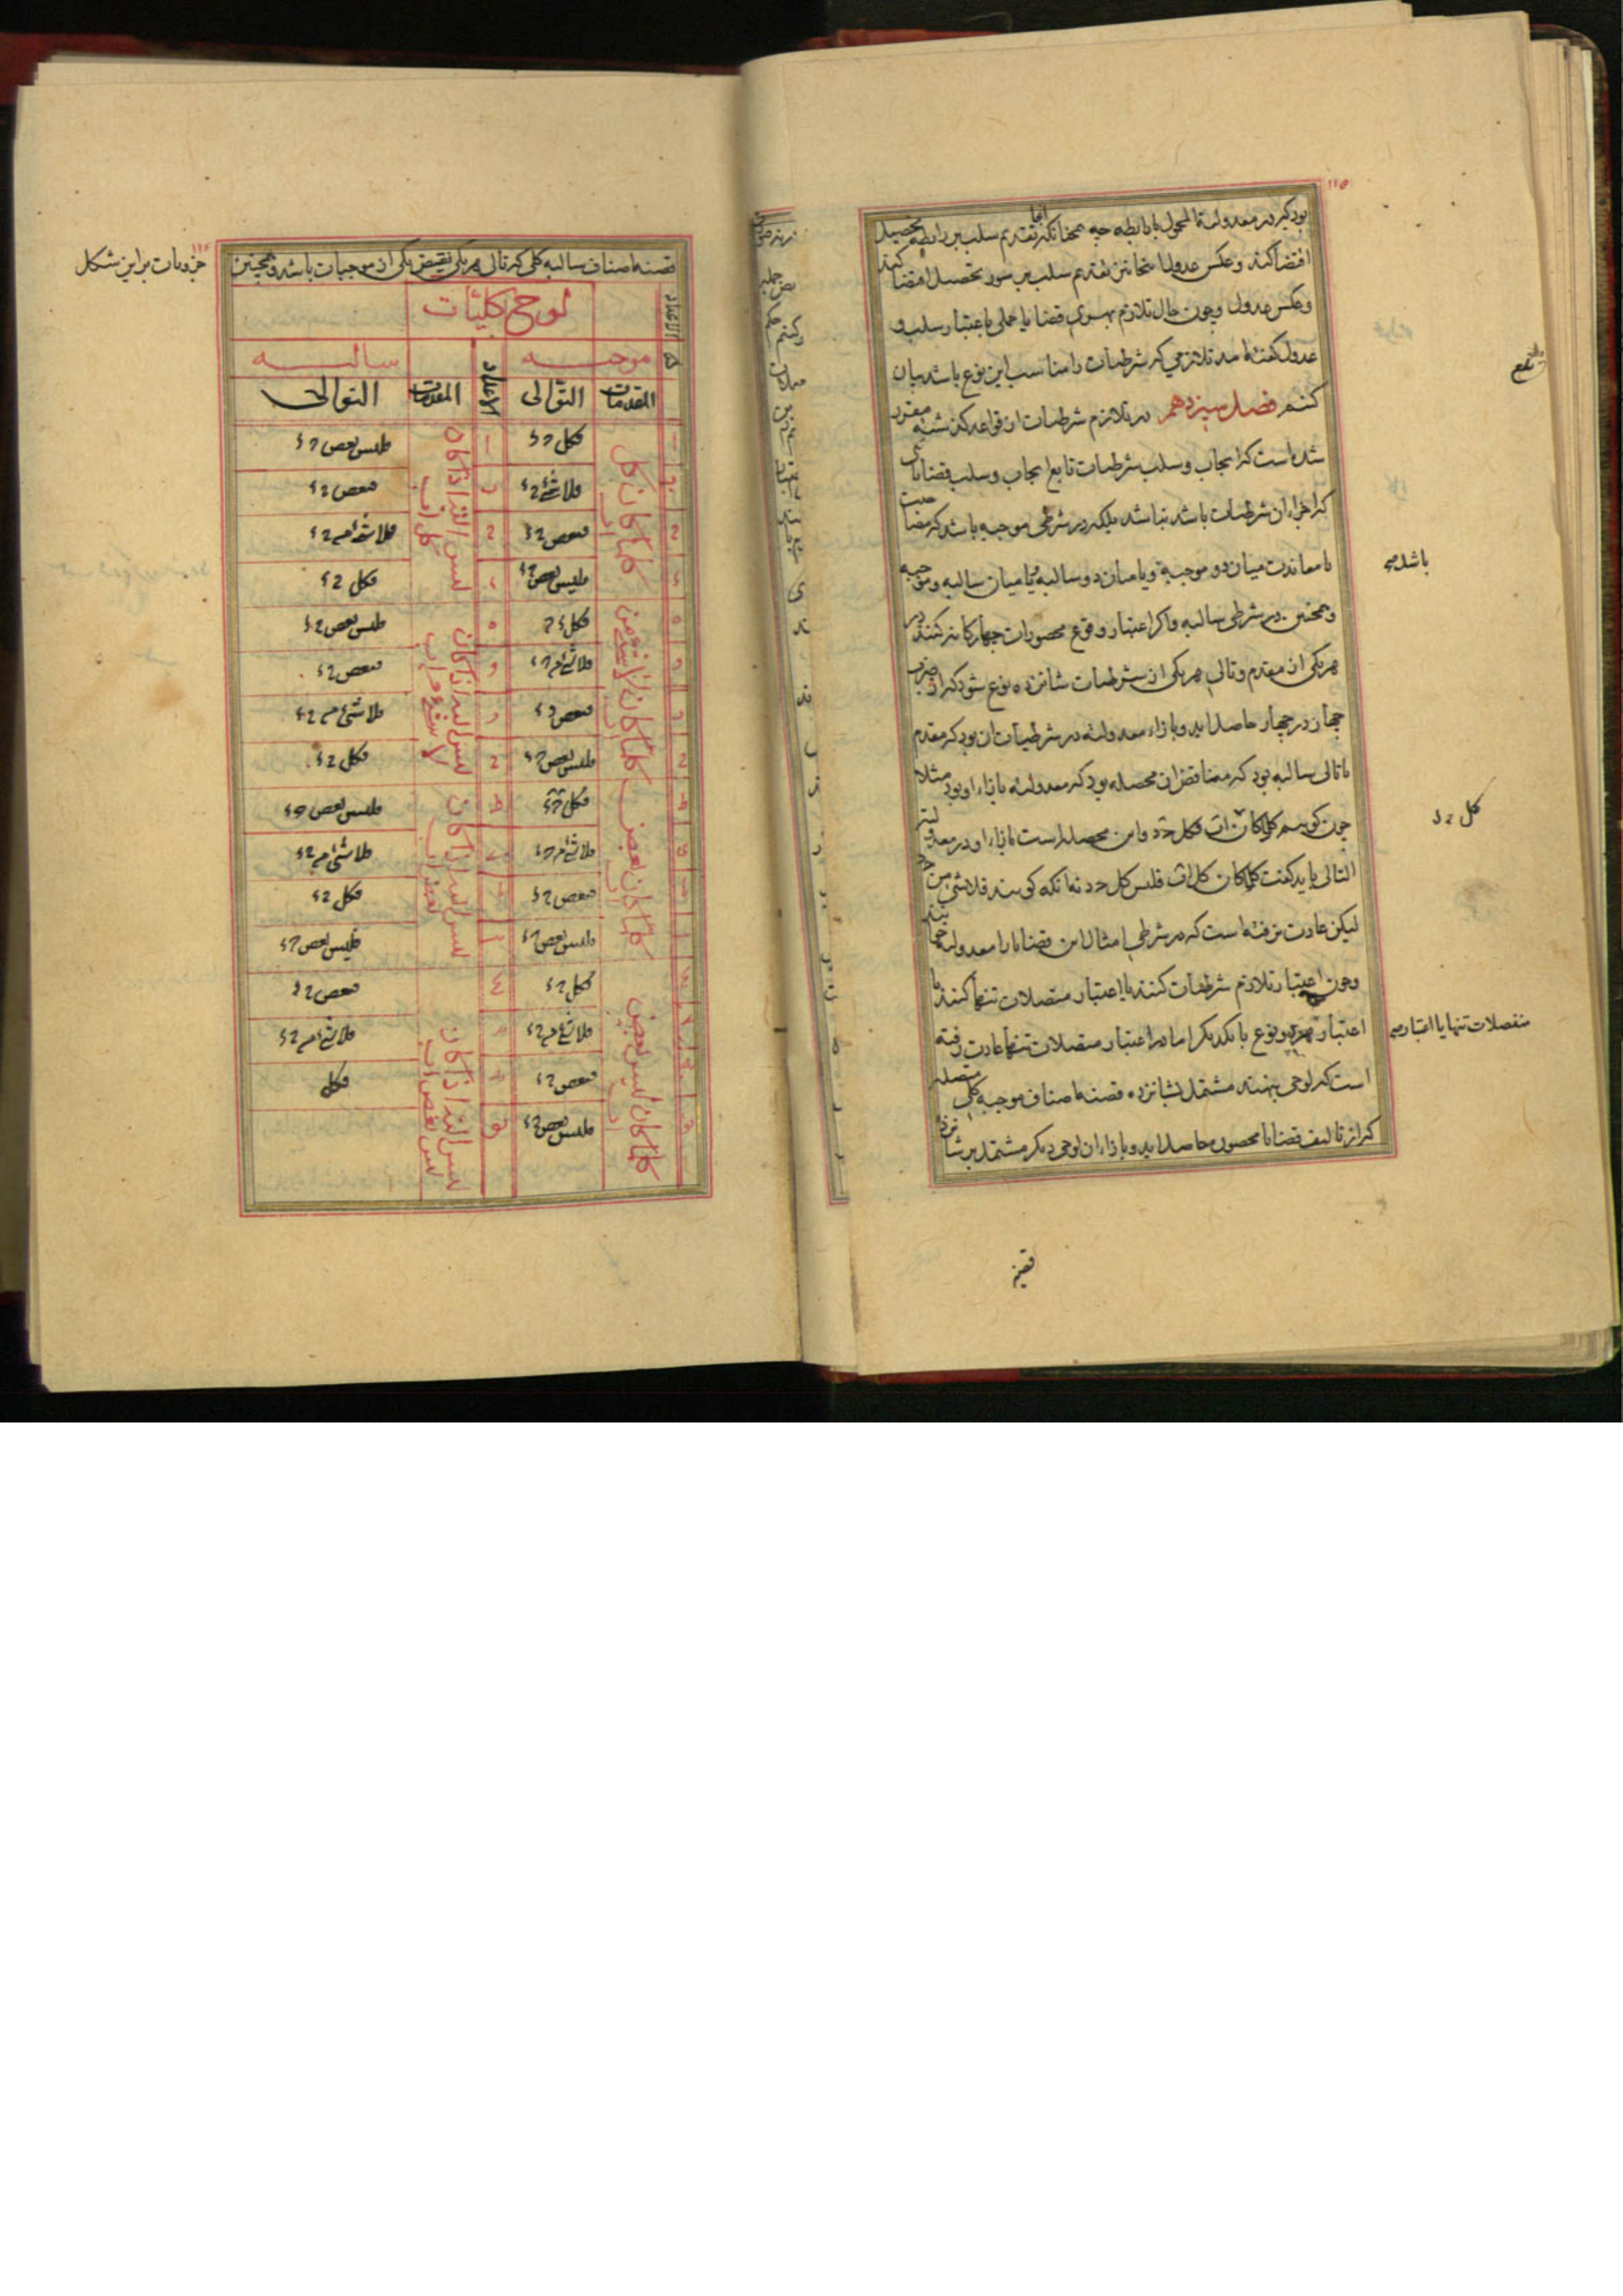 ۱۱۵
بود که در معدولة المحمول با رابطه چه همچنانکه آنجا تقدیم سلب بر رابطه تحصیل
اقتضا کند و عکس عدول اینجا نیز تقدیم سلب بر سور تحصیل اقتضا کند
و عکس عدول و چون حال تلازم بسوی قضایا حملی باعتبار سلب و
عدول گفته امد تلازمی که شرطیات را مناسب این نوع باشد بیان
کنیم فصل سیزدهم در تلازم شرطیات از قواعد گذشته مقرر
شده است که ایجاب و سلب شرطیات تابع ایجاب و سلب قضایائی
که اجزاء ان شرطیات باشد نباشد بلکه در شرطی موجبه باشد که مصاحبت
یا معاندت میان دو موجبه و یا میان دو سالبه و یا میان سالبه و موجبه
باشد
و همچنین در شرطی سالبه و اگر اعتبار وقوع محصورات چهارگانه کنند در
هر یکی از مقدم و تالی هر یکی از شرطیات شانزده نوع شود که از ضرب
چهار در چهار حاصل اید و بازاء معدولیه در شرطیات ان بود که مقدم
یا تالی سالبه بود که مناقض ان محصله بود که معدولیه بازاء او بود مثلا
چون گوییم کلما کان اب فکل ج د و این محصله است بازاء او در معدولیة
کل ج د
التالی باید گفت کلما کان کل اب فلیس کل ج د نه انکه گویند فلا شئ من ج د
لیکن عادت نرفته است که در شرطی امثال این قضایا را معدولیه
و چون اعتبار تلازم شرطیات کنند یا اعتبار متصلات تنها کنند یا
منفصلات تنها یا اعتبار
اعتبار هر دو نوع با یکدیگر اما در اعتبار متصلات تنها عادت رفته
است که لوحی بنهند مشتمل بشانزده قضیه اصناف موجبه کلی متصله
که از تالیف قضایا محصور حاصل اید و بازاء ان لوحی دیگر مشتمل بر شانزده
قضیه
۱۱۶
قضیه اصناف سالبه کلی که تالی هر یکی نقیض یکی از موجبات باشد و همچنین
جزویات بر این شکل
لوح کلیات
الاعداد
موجبه
سالبه
المقدمات
التوالی
الاعداد
المقدمات
التوالی
کلما کان کل اب
فکل ج د
لیس البتة اذا کان کل اب
فلیس بعض ج د
فلا شئ ج د
فبعض ج د
فبعض ج د
فلا شئ من ج د
فلیس بعض ج د
فکل ج د
کلما کان لا شئ من اب
فکل ج د
لیس البتة اذا کان لا شئ من اب
فلیس بعض ج د
فلا شئ من ج د
فبعض ج د
فبعض ج د
فلا شئ من ج د
فلیس بعض ج د
فکل ج د
کلما کان بعض اب
فکل ج د
لیس البتة اذا کان بعض اب
فلیس بعض ج د
فلا شئ من ج د
فلا شئ من ج د
فبعض ج د
فکل ج د
فلیس بعض ج د
فلیس بعض ج د
کلما کان لیس بعض اب
فکل ج د
لیس البتة اذا کان لیس بعض اب
فبعض ج د
فلا شئ من ج د
فلا شئ من ج د
فبعض ج د
فکل
فلیس بعض ج د